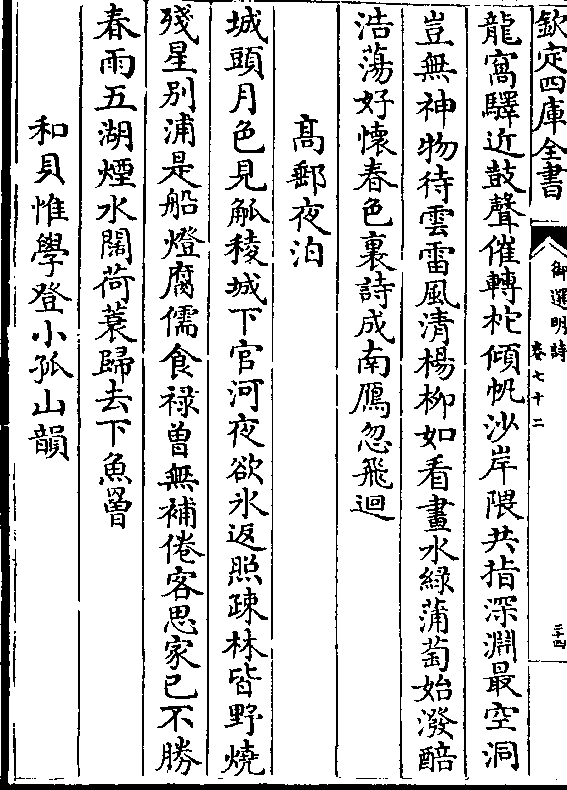 欽定四庫全書
御選明詩
卷七十二
二十四
龍窩驛近鼓聲催轉柁傾帆沙岸隈共指深淵最空洞
豈無神物待雲雷風清楊柳如看畫水綠蒲萄始潑醅
浩蕩好懷春色裏詩成南鴈忽飛迴
高郵夜泊
城頭月色見觚稜城下官河夜欲氷返照疎林皆野燒
殘星别浦是船燈腐儒食祿曽無補倦客思家已不勝
春雨五湖煙水闊荷蓑歸去下魚罾
和貝惟學登小孤山韻